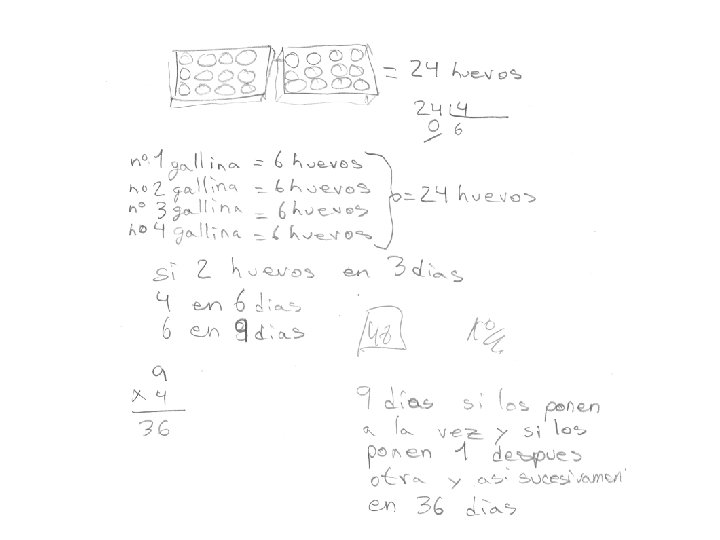 = 24 huevos
24 4
0 6
nº 1 gallina = 6 huevos
nº 2 gallina = 6 huevos
nº 3 gallina = 6 huevos
nº 4 gallina = 6 huevos
= 24 huevos
si 2 huevos en 3 dias
4 en 6 dias
6 en 9 dias
9
x 4
36
9 días si los ponen
a la vez y si los
ponen 1 despues
otra y asi sucesivamen
en 36 días